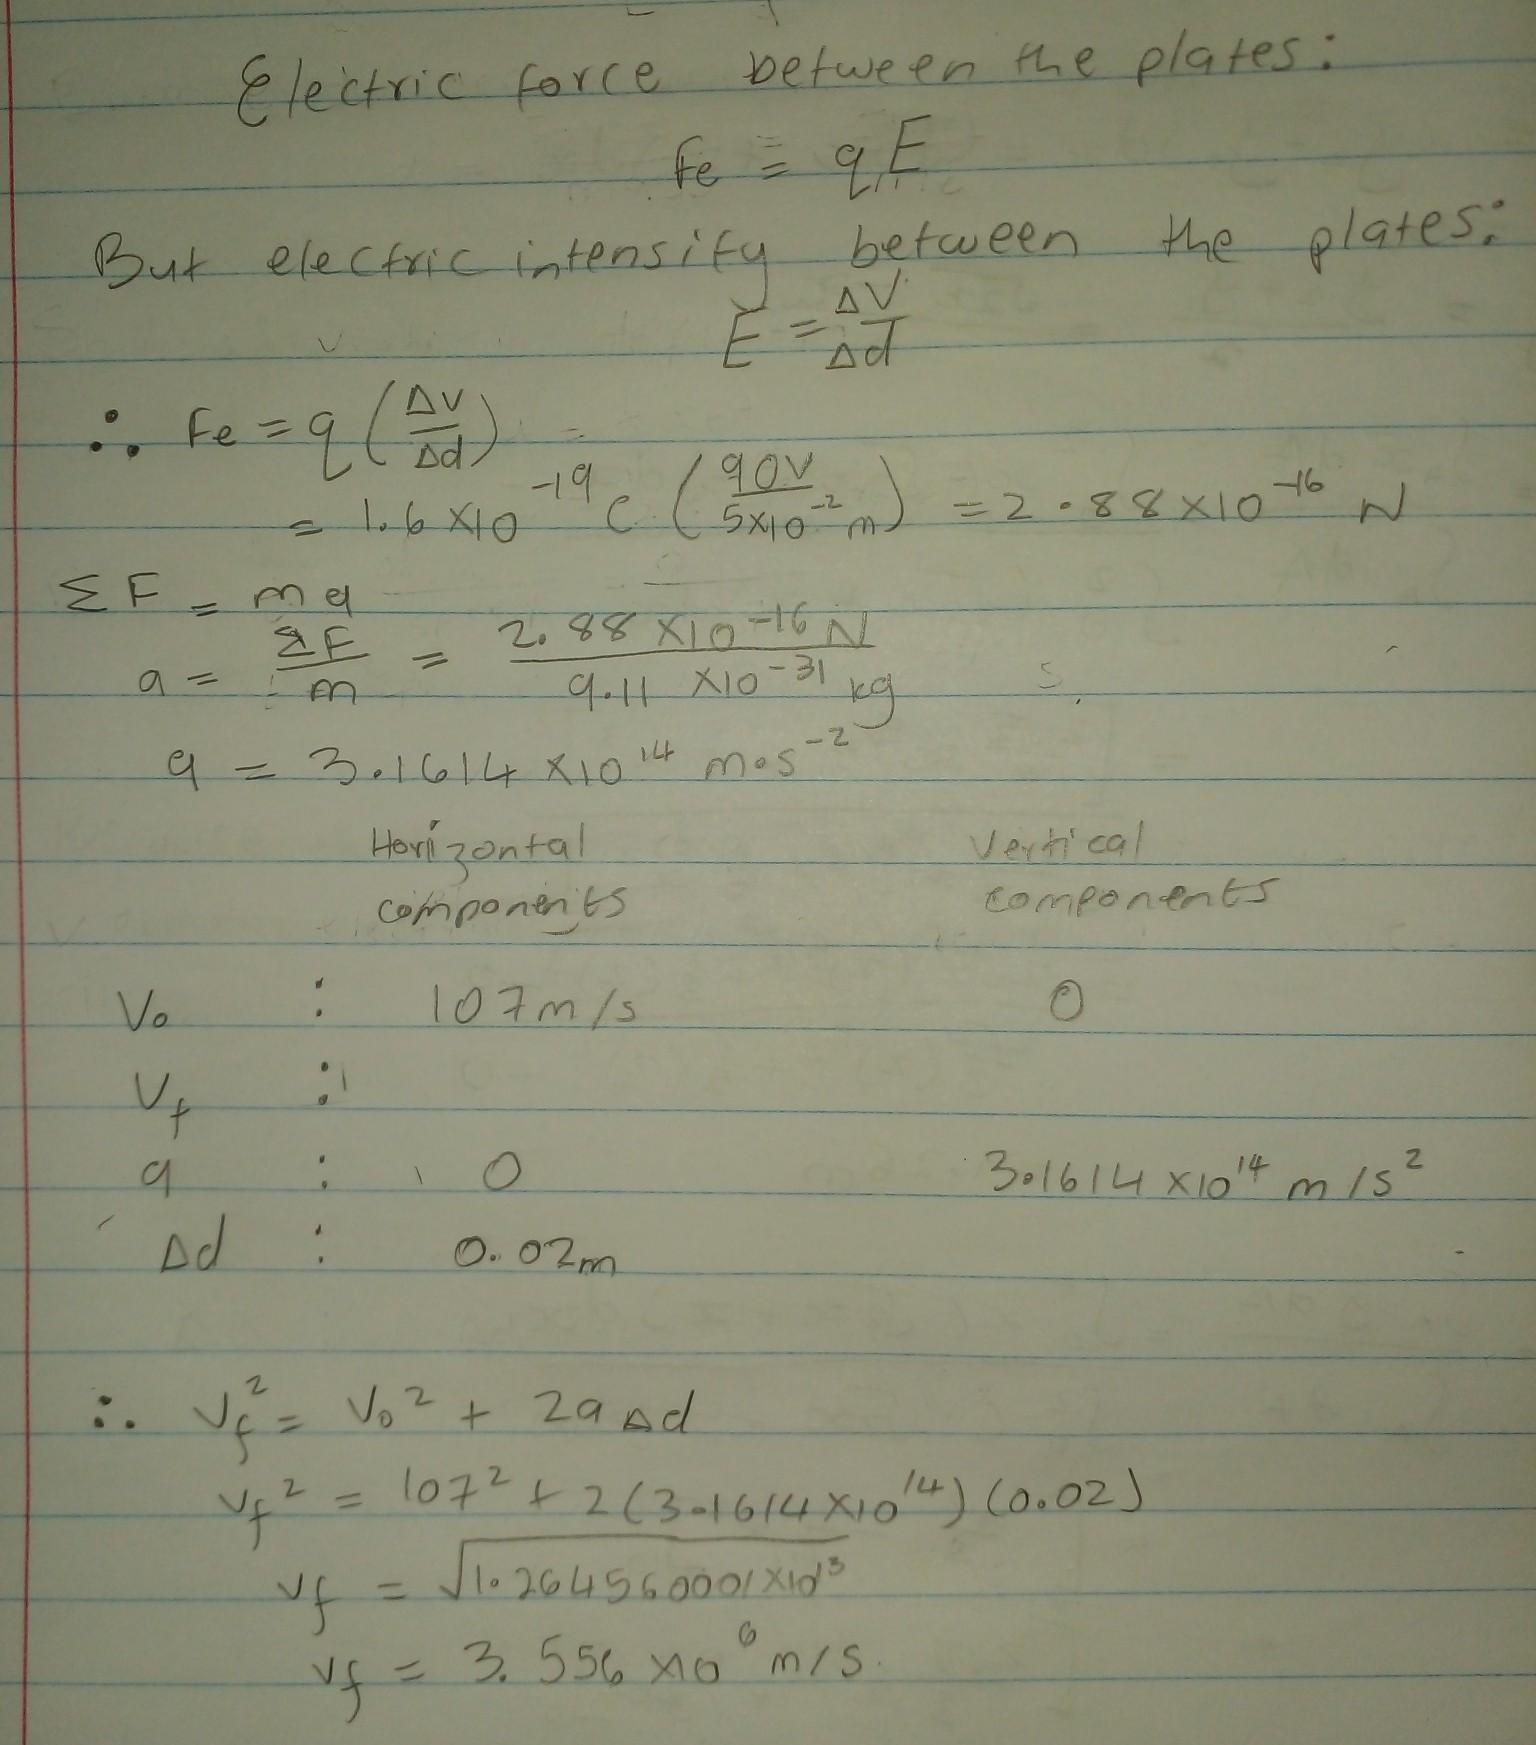 Electric force between the plates:
Fe = qE
But electric intensity between the plates:
E = ΔV/Δd
∴ Fe = q(ΔV/Δd)
= 1.6 x10^-19 C (90V/5x10^-2 m) = 2.88 x10^-16 N
ΣF = ma
a = ΣF/m = 2.88 x10^-16 N/9.11 x10^-31 kg
a = 3.1614 x10^14 m·s^-2
Horizontal components Vertical components
Vo : 107m/s 0
Vf :
a : 0 3.1614 x10^14 m/s^2
Δd : 0.02m
∴ Vf^2 = Vo^2 + 2aΔd
Vf^2 = 107^2 + 2(3.1614 x10^14)(0.02)
Vf = √1.2645560001 x10^13
Vf = 3.556 x10^6 m/s.